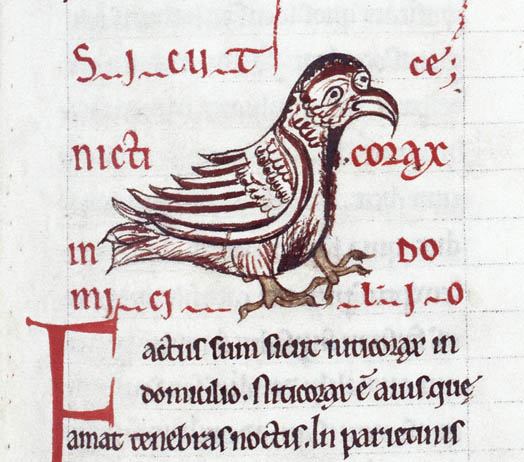 S I CUT ce;
nicti corax
in DO
mi ci LI O
Factus sum sicut niticorax in
domicilio. Niticorax ē auis que
amat tenebras noctis. In parietinis